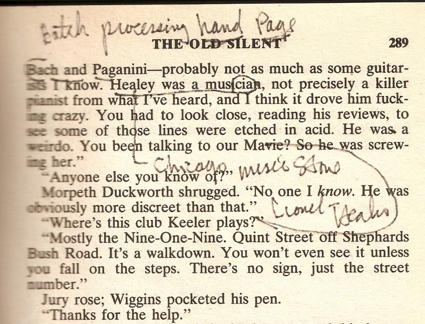 Batch processing hand Page
THE OLD SILENT 289
Bach and Paganini—probably not as much as some guitar-
ists I know. Healey was a musician, not precisely a killer
pianist from what I've heard, and I think it drove him fuck-
ing crazy. You had to look close, reading his reviews, to
see some of those lines were etched in acid. He was a
weirdo. You been talking to our Mavie? So he was screw-
ing her."
Chicago, music
"Anyone else you know of?"
Morpeth Duckworth shrugged. "No one I know. He was
obviously more discreet than that." Lionel
"Where's this club Keeler plays?"
"Mostly the Nine-One-Nine. Quint Street off Shephards
Bush Road. It's a walkdown. You won't even see it unless
you fall on the steps. There's no sign, just the street
number."
Jury rose; Wiggins pocketed his pen.
"Thanks for the help."